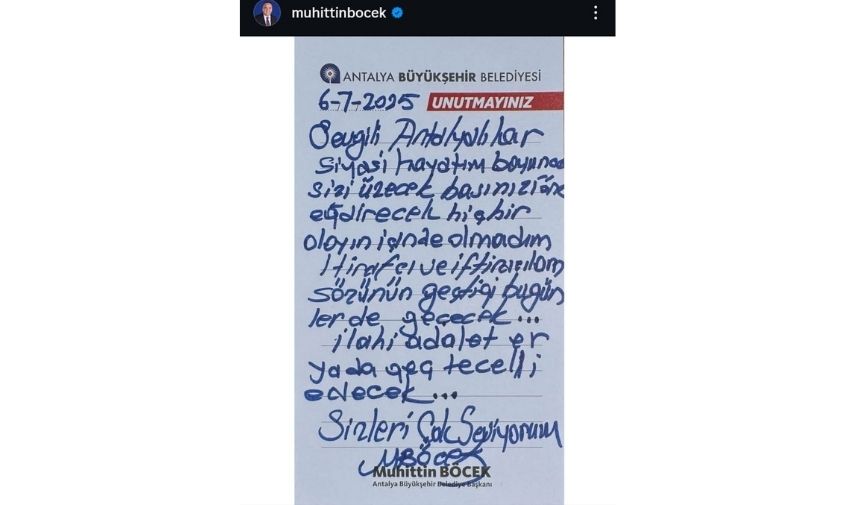 muhittinbocek
ANTALYA BÜYÜKŞEHİR BELEDİYESİ
6-7-2025 UNUTMAYINIZ
Sevgili Antalyalılar
siyasi hayatım boyunca
sizi üzecek başınızı öne
eğdirecek hiçbir
olayın içinde olmadım
İtirafçı ve iftiracıların
sözünün geçtiği bugün
lerde geçecek...
ilahi adalet er
yada geç tecelli
edecek...
Sizleri Çok Seviyorum
MBÖCEK
Muhittin BÖCEK
Antalya Büyükşehir Belediye Başkanı